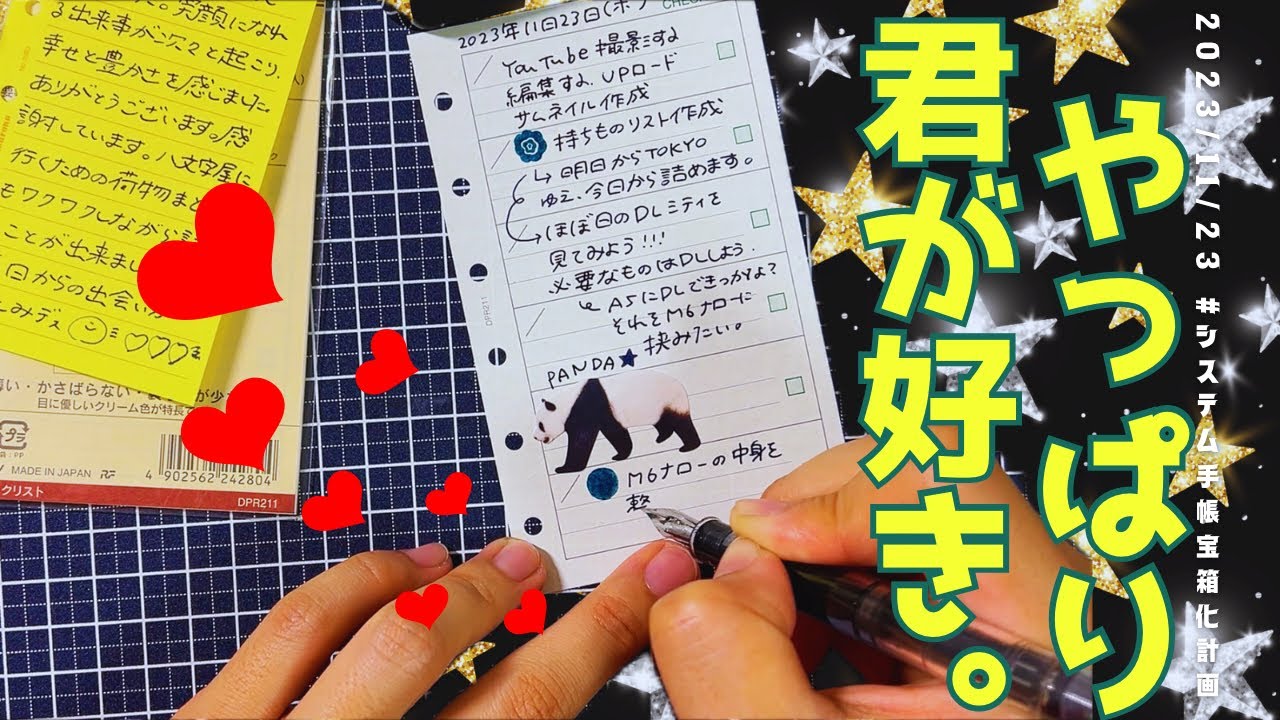 る出来事が次2と起こり、
幸せと豊かさを感じました。
ありがとうございます。感
謝しています。八文字屋に
行くための荷物ま
もワクワクしながら
ことが出来まし
日からの出会い
しみデス
・かさばらない・
目に優しいクリーム色が特長で
プラ
MADE IN JAPAN
4 902562 242804
クリスト
DPR211
2023年11月23日(木)
CHECK
YouTube撮影する
編集する。UPロード
サムネイル作成
持ちものリスト作成
↳明日からTOKYO
ゆえ、今日から詰めます。
→ほぼ日のDLミティを
見てみよう!!!
必要なものはDLしよう。
↳A5にDLできっかよ?
それをM6ナローに
挟みたい。
DPR211
PANDA★
M6ナローの中身を
整
やっぱり
君が好き。
2023/11/23 #システム手帳宝箱化計画